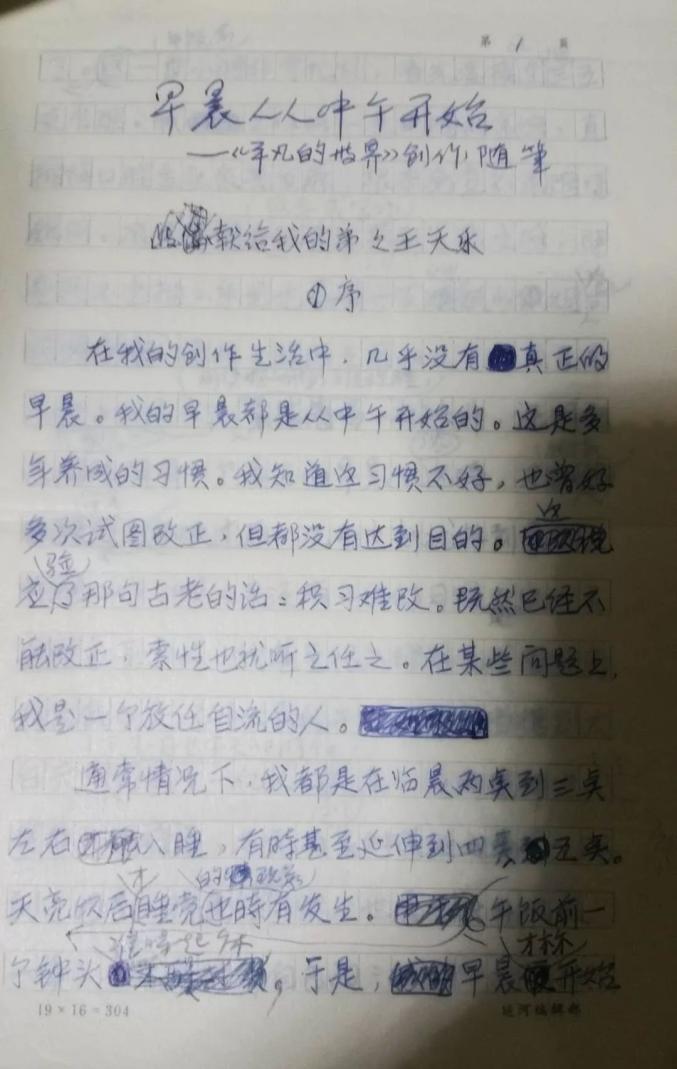 第 1 页
早晨从中午开始
——《平凡的世界》创作随笔
献给我的弟弟王天乐
① 序
在我的创作生活中，几乎没有真正的
早晨。我的早晨都是从中午开始的。这是多
年养成的习惯。我知道这习惯不好，也曾好
多次试图改正，但都没有达到目的。这
应验了那句古老的话：积习难改。既然已经不
能改正，索性也就听之任之。在某些问题上，
我是一个放任自流的人。
通常情况下，我都是在临晨两点到三点
左右入睡，有时甚至延伸到四点五点。
天亮以后才睡觉的现象也时有发生。午饭前一
个钟头，于是，早晨才算开始
19×16=304
运河编辑部